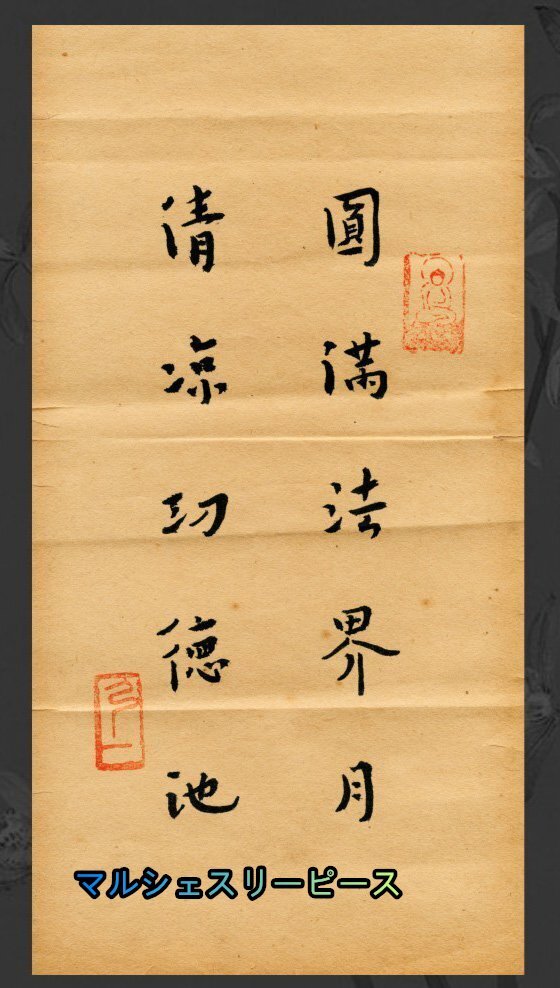 圓満法界月
清涼功德池
マルシェスリーピース